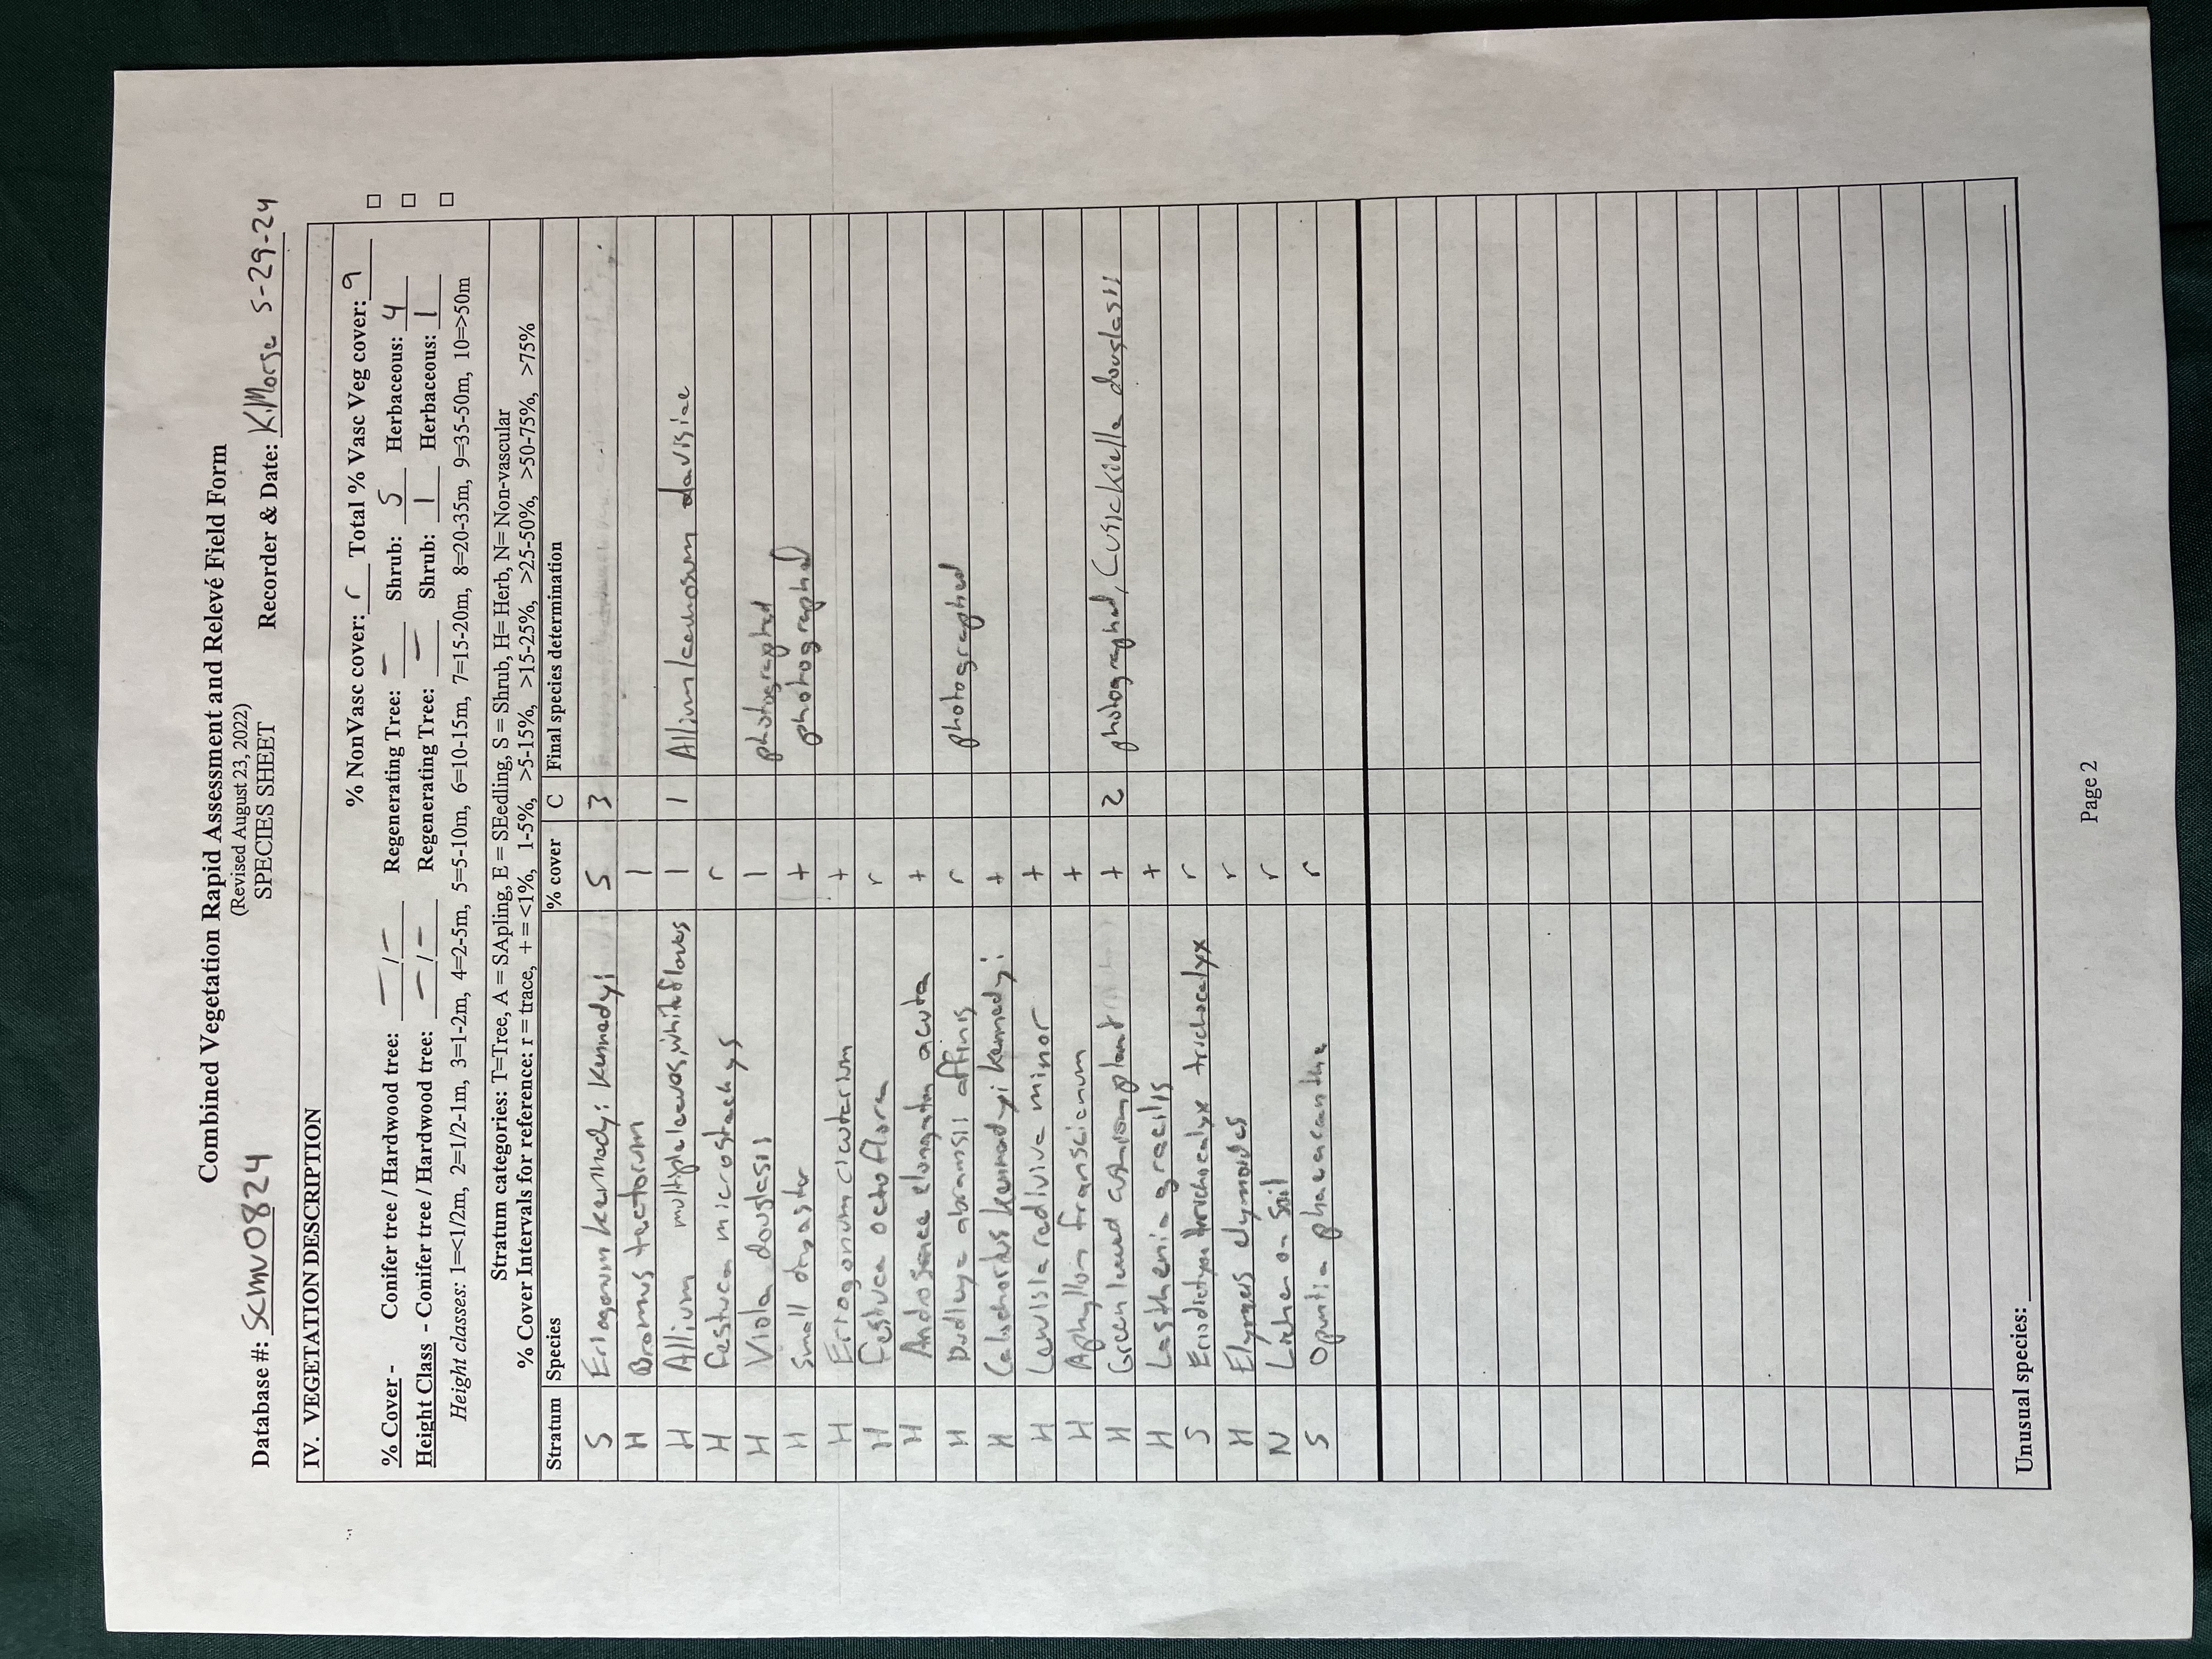 Combined Vegetation Rapid Assessment and Relevé Field Form
(Revised August 23, 2022)
SPECIES SHEET
Database #: SCMV0824 Recorder & Date: K.Morse 5-29-24
IV. VEGETATION DESCRIPTION
% NonVasc cover: r Total % Vasc Veg cover: 9 □
% Cover - Conifer tree / Hardwood tree: - / - Regenerating Tree: - Shrub: 5 Herbaceous: 4 □
Height Class - Conifer tree / Hardwood tree: - / - Regenerating Tree: - Shrub: 1 Herbaceous: 1 □
Height classes: 1=<1/2m, 2=1/2-1m, 3=1-2m, 4=2-5m, 5=5-10m, 6=10-15m, 7=15-20m, 8=20-35m, 9=35-50m, 10=>50m
Stratum categories: T=Tree, A = SApling, E = SEedling, S = Shrub, H= Herb, N= Non-vascular
% Cover Intervals for reference: r = trace, + = <1%, 1-5%, >5-15%, >15-25%, >25-50%, >50-75%, >75%
Stratum Species % cover C Final species determination
S Eriogonum kennedyi kennedyi 5 3
H Bromus tectorum 1
H Allium multiple leaves, white flowers 1 1 Allium lacunosum davisiae
H Festuca microstachys r
H Viola douglasii 1 photographed
H Small + photographed
H Eriogonum cicutarium +
H Festuca octoflora r
H Androsace elongata acuta +
H Dudleya abramsii affinis r photographed
H Calochortus kennedyi kennedyi +
H Lewisia rediviva minor +
H Aphyllon franciscanum +
H Green leaved cushion plant + 2 photographed, Cusickiella douglasii
H Lasthenia gracilis +
S Eriodictyon trichocalyx trichocalyx r
H Elymus elymoides r
N Lichen on soil r
S Opuntia phaeacantha r
Unusual species:
Page 2